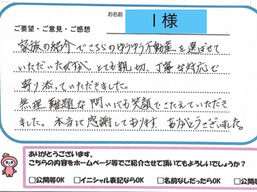 お名前
I様
ご要望・ご意見・ご感想
家族の紹介でこちらのゆうゆう不動産を選ばせて
いただいたが、とても親切、丁寧な対応で
寄り添っていただきました。
無理難題な問いにも笑顔でこたえていただき
ました。本当に感謝しております ありがとうございました。
ありがとうございます。
こちらの内容をホームページ等でご紹介させて頂いてもよろしいでしょうか?
□公開等OK □イニシャル表記ならOK □名前なしだったらOK